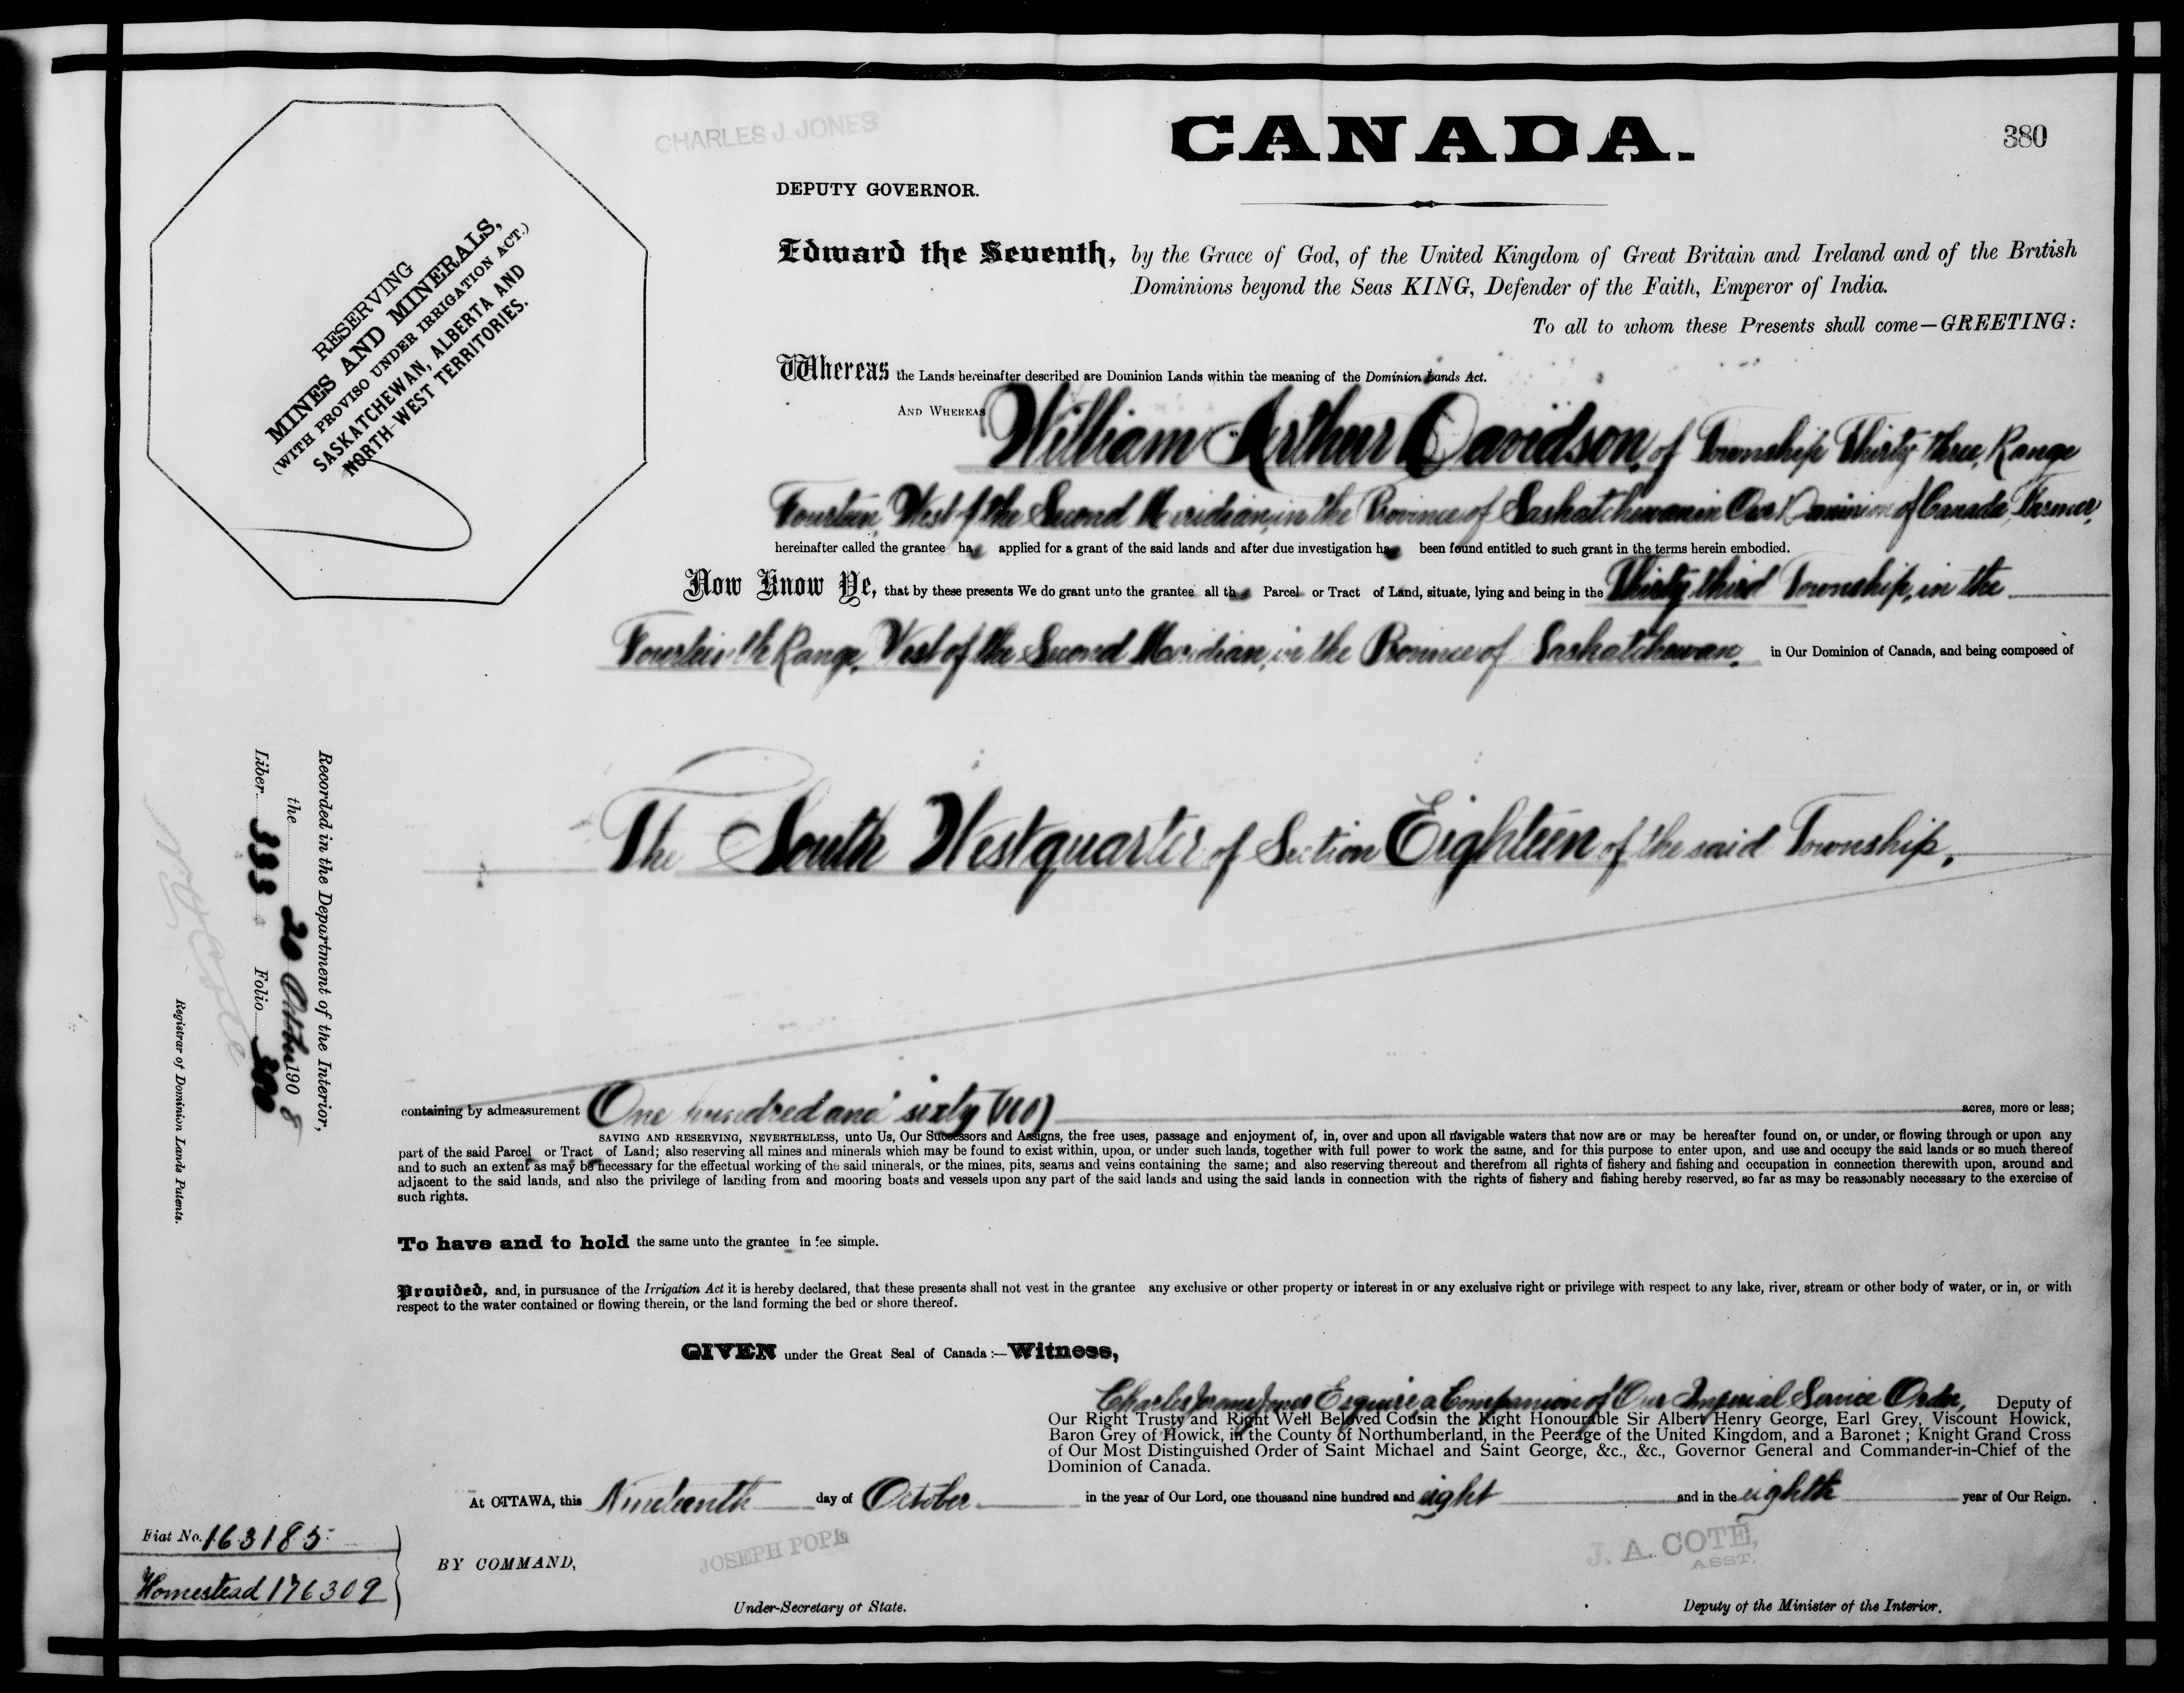 CHARLES J. JONES
CANADA.
380
DEPUTY GOVERNOR.
RESERVING
MINES AND MINERALS,
(WITH PROVISO UNDER IRRIGATION ACT.)
SASKATCHEWAN, ALBERTA AND
NORTH-WEST TERRITORIES.
Edward the Seventh, by the Grace of God, of the United Kingdom of Great Britain and Ireland and of the British
Dominions beyond the Seas KING, Defender of the Faith, Emperor of India.
To all to whom these Presents shall come—GREETING:
Whereas the Lands hereinafter described are Dominion Lands within the meaning of the Dominion Lands Act.
AND WHEREAS William Arthur Davidson, of Township Thirty-three, Range
Fourteen, West of the Second Meridian, in the Province of Saskatchewan in Our Dominion of Canada, Farmer,
hereinafter called the grantee has applied for a grant of the said lands and after due investigation has been found entitled to such grant in the terms herein embodied.
Now Know Ye, that by these presents We do grant unto the grantee all that Parcel or Tract of Land, situate, lying and being in the Thirty third Township, in the
Fourteenth Range, West of the Second Meridian, in the Province of Saskatchewan, in Our Dominion of Canada, and being composed of
The South West quarter of Section Eighteen of the said Township,
containing by admeasurement One hundred and sixty (160) acres, more or less;
SAVING AND RESERVING, NEVERTHELESS, unto Us, Our Successors and Assigns, the free uses, passage and enjoyment of, in, over and upon all navigable waters that now are or may be hereafter found on, or under, or flowing through or upon any
part of the said Parcel or Tract of Land; also reserving all mines and minerals which may be found to exist within, upon, or under such lands, together with full power to work the same, and for this purpose to enter upon, and use and occupy the said lands or so much thereof
and to such an extent as may be necessary for the effectual working of the said minerals, or the mines, pits, seams and veins containing the same; and also reserving thereout and therefrom all rights of fishery and fishing and occupation in connection therewith upon, around and
adjacent to the said lands, and also the privilege of landing from and mooring boats and vessels upon any part of the said lands and using the said lands in connection with the rights of fishery and fishing hereby reserved, so far as may be reasonably necessary to the exercise of
such rights.
To have and to hold the same unto the grantee in fee simple.
Provided, and, in pursuance of the Irrigation Act it is hereby declared, that these presents shall not vest in the grantee any exclusive or other property or interest in or any exclusive right or privilege with respect to any lake, river, stream or other body of water, or in, or with
respect to the water contained or flowing therein, or the land forming the bed or shore thereof.
GIVEN under the Great Seal of Canada:—Witness,
Charles Jones Esquire a Companion of Our Imperial Service Order, Deputy of
Our Right Trusty and Right Well Beloved Cousin the Right Honourable Sir Albert Henry George, Earl Grey, Viscount Howick,
Baron Grey of Howick, in the County of Northumberland, in the Peerage of the United Kingdom, and a Baronet; Knight Grand Cross
of Our Most Distinguished Order of Saint Michael and Saint George, &c., &c., Governor General and Commander-in-Chief of the
Dominion of Canada.
At OTTAWA, this Nineteenth day of October in the year of Our Lord, one thousand nine hundred and eight and in the eighth year of Our Reign.
BY COMMAND,
JOSEPH POPE
Under-Secretary of State.
J. A. COTE,
ASST.
Deputy of the Minister of the Interior.
Recorded in the Department of the Interior,
the 20 October 1908
Liber 333 Folio
Registrar of Dominion Lands Patents.
Fiat No. 163185
Homestead 176309